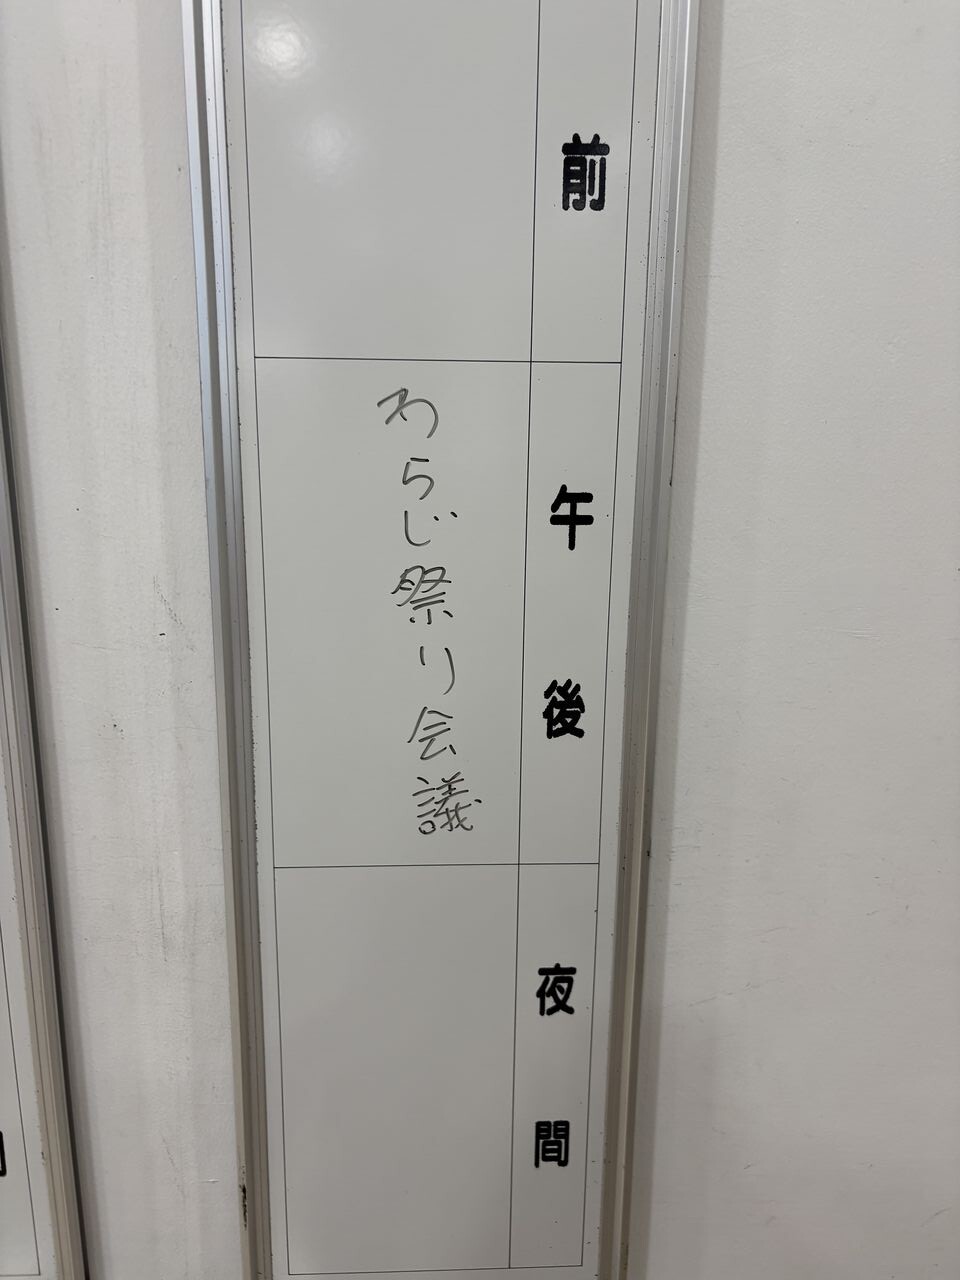 前
午後
わらじ祭り会議
夜間